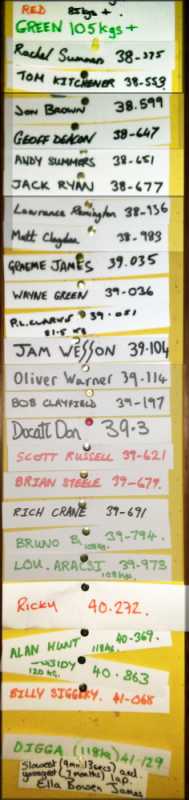 RED 85kgs +.
GREEN 105kgs+
Rachel Summers 38-375
TOM KITCHENER 38-553
JON BROWN 38.599
GEOFF DEACON 38-647
ANDY SUMMERS 38-651
JACK RYAN 38-677
Lawrance Remington 38-936
Matt Claydon 38-983
GRAEME JAMES 39.035
WAYNE GREEN 39-036
P.L. CLARKE 39-051
JAM WESSON 39.104
Oliver Warner 39.114
BOB CLAYFIELD 39-197
Docatt Don 39.3
SCOTT RUSSELL 39-621
BRIAN STEELE 39-679.
RICH CRANE 39-691
BRUNO B, 39-794.
108kg.
LOU. ARACSI 39-973
108kgs.
Ricky 40.272.
ALAN HUNT 40-369.
118kg
40.863
120 kg.
BILLY SIGGERY. 41-068
DIGGA (118kg) 41-129
Slowest (9min 13secs) and
youngest (7 months) lap.
Ella Bowen James